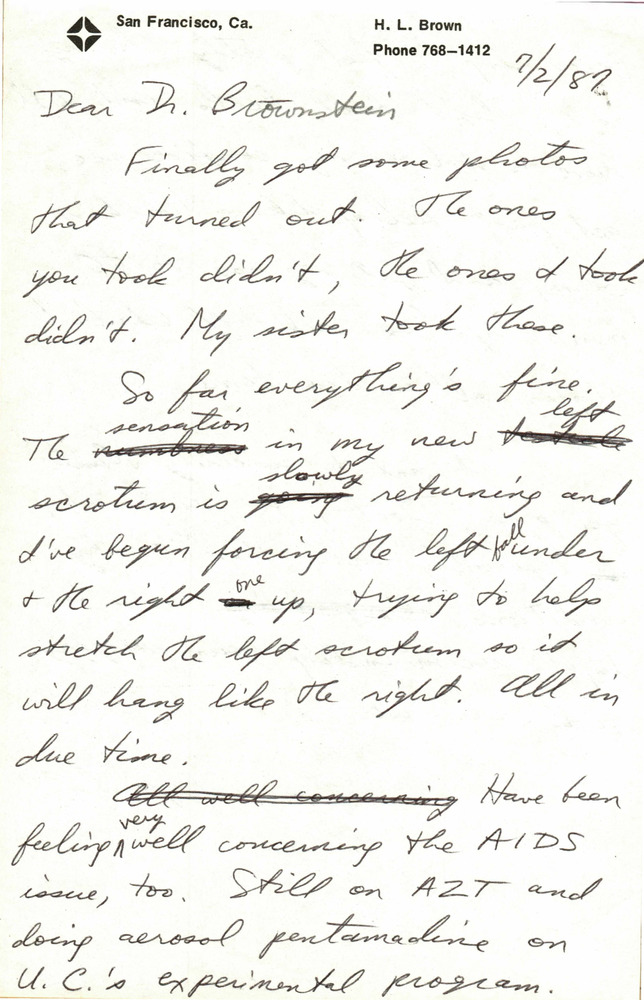 San Francisco, Ca.
H. L. Brown
Phone 768-1412
7/2/87
Dear Dr. Brownstein
Finally got some photos
that turned out. The ones
you took didn't, the ones I took
didn't. My sister took these.
So far everything's fine.
The numbness sensation in my new testicle left
scrotum is going slowly returning and
I've begun forcing the left ball under
+ the right one up, trying to help
stretch the left scrotum so it
will hang like the right. All in
due time.
All well concerning Have been
feeling very well concerning the AIDS
issue, too. Still on AZT and
doing aerosol pentamadine on
U. C.'s experimental program.